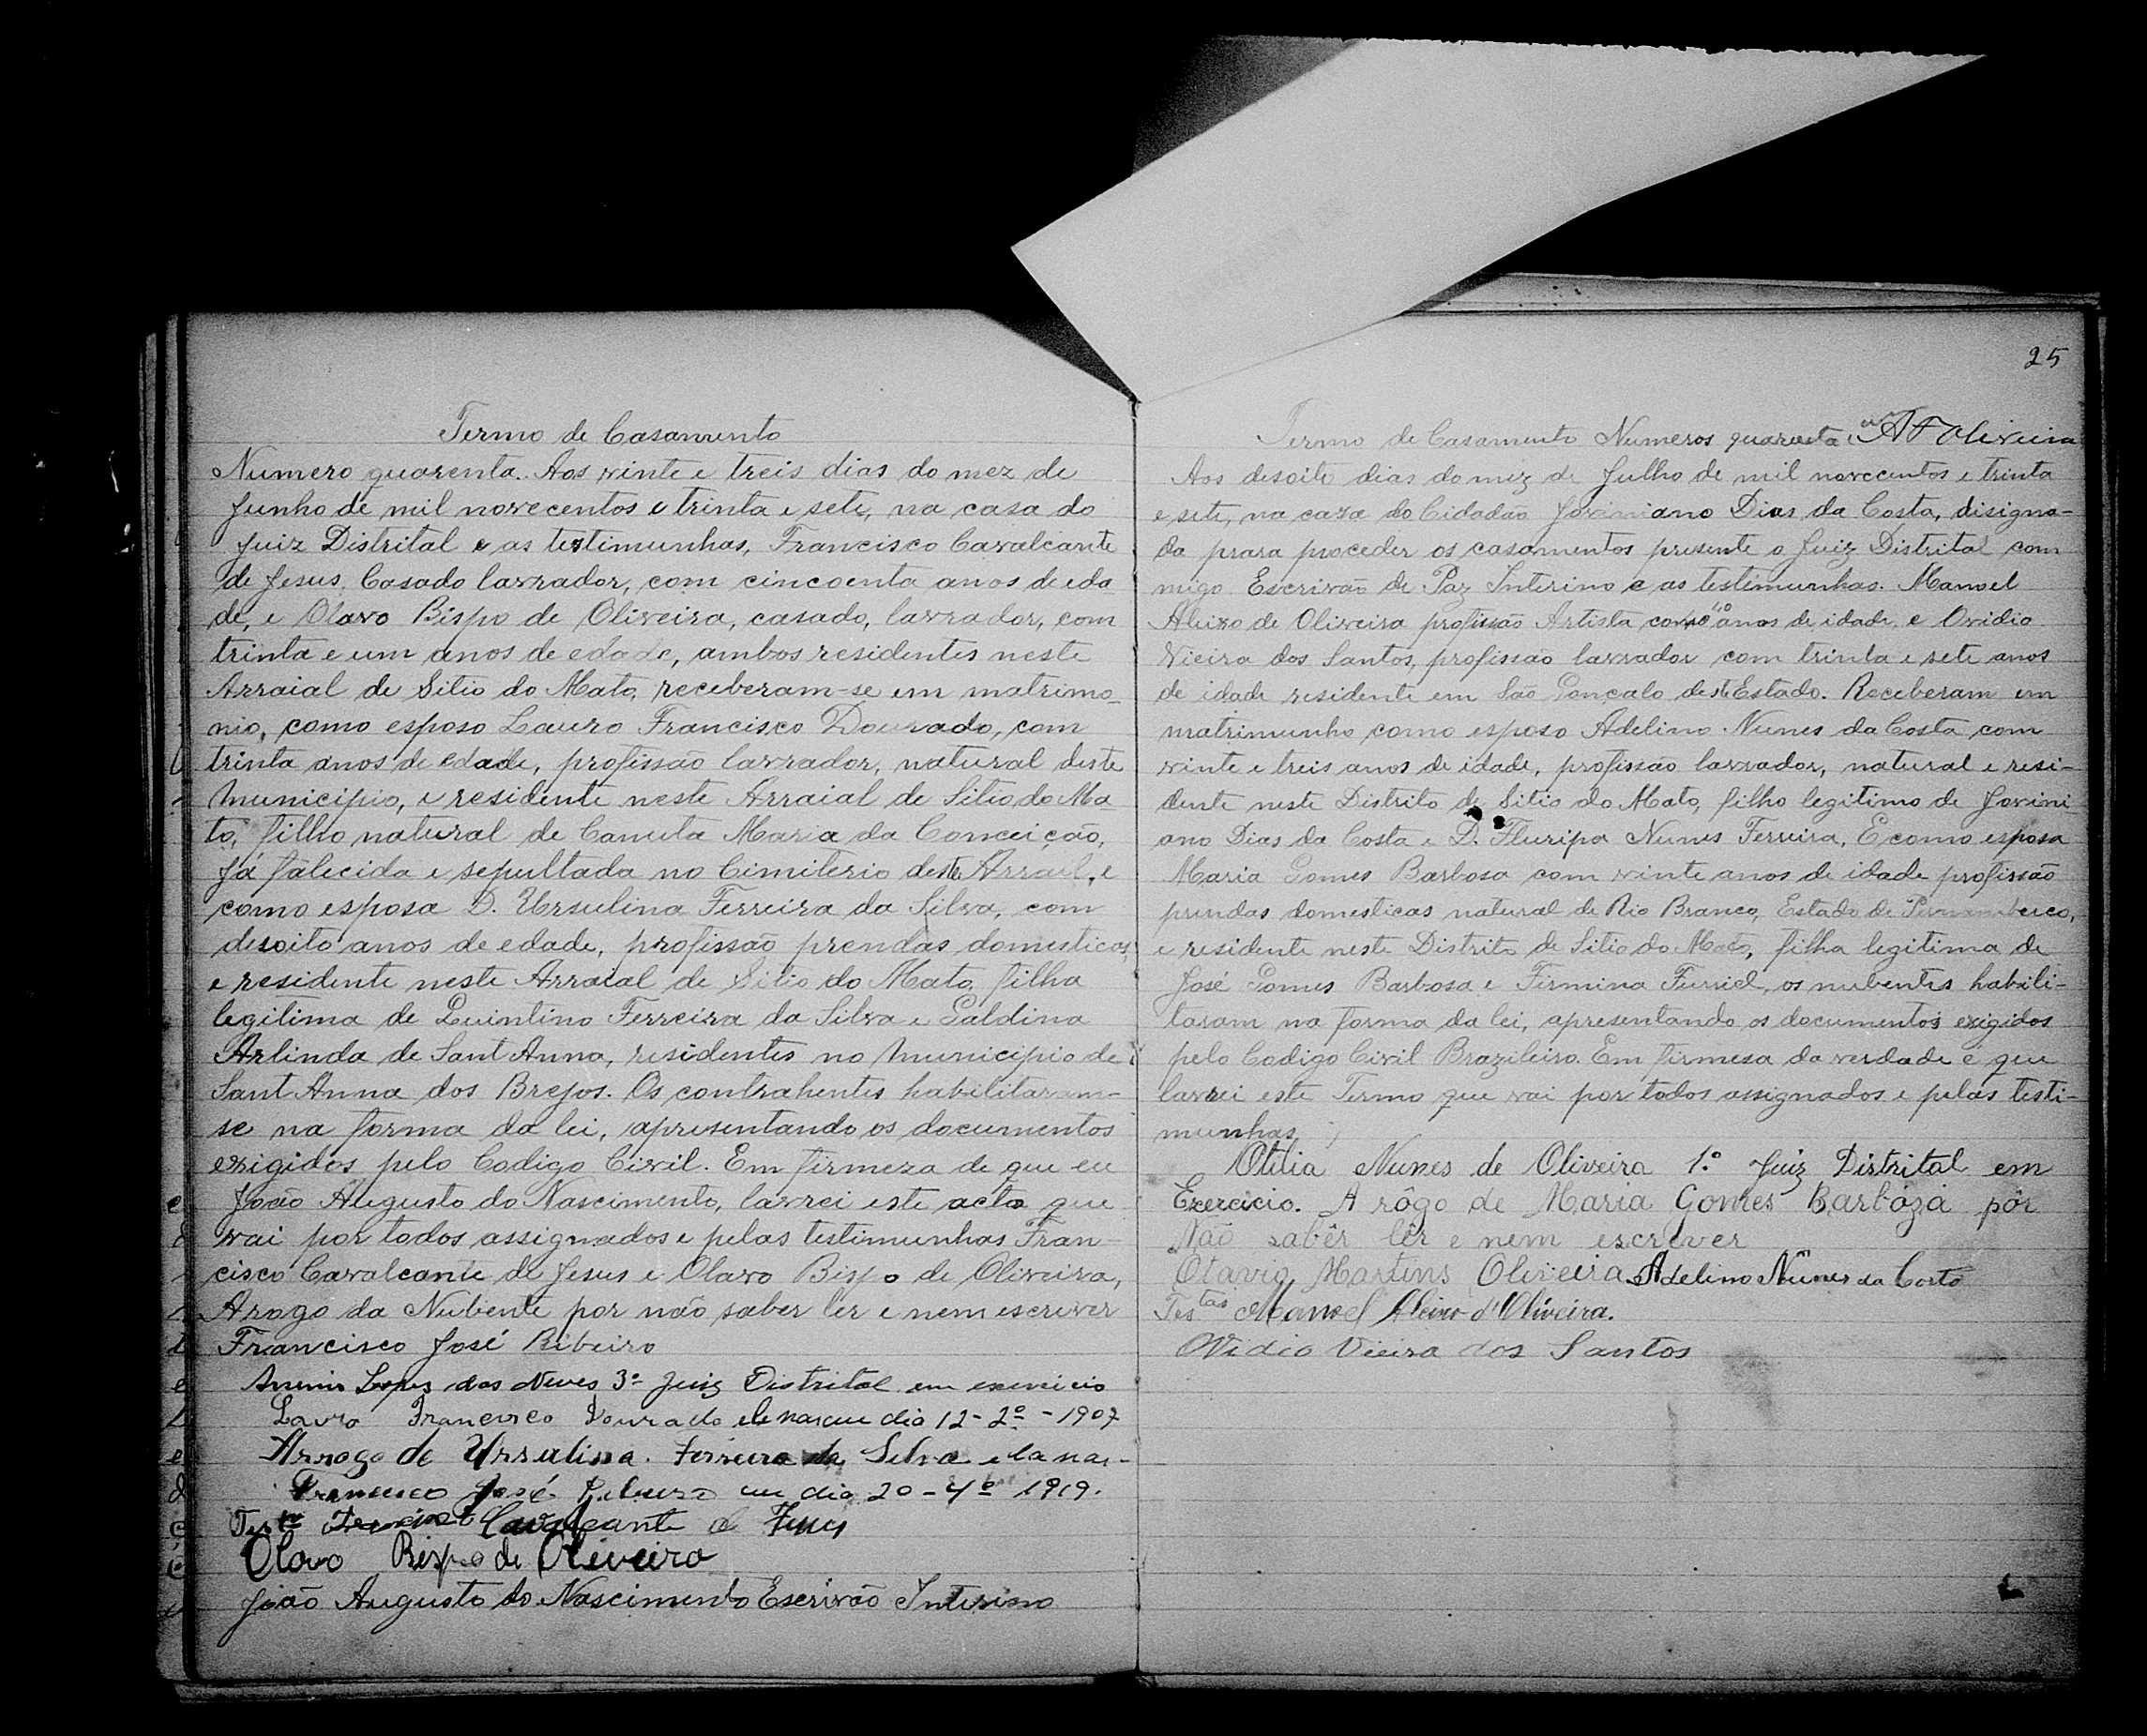 Termo de Casamento
Numero quarenta. Aos vinte e treis dias do mez de
Junho de mil novecentos e trinta e sete, na casa do
Juiz Distrital e as testimunhas, Francisco Cavalcante
de Jesus, Casado lavrador, com cincoenta anos de eda
de, e Olavo Bispo de Oliveira, casado, lavrador, com
trinta e um anos de edade, ambos residentes neste
Arraial de Sitio do Mato, receberam-se em matrimo_
nio, como esposo Lauro Francisco Dourado, com
trinta anos de edade, profissão lavrador, natural deste
Municipio, e residente neste Arraial de Sitio do Ma
to, filho natural de Canuta Maria da Conceição,
já falecida e sepultada no Cimiterio deste Arraial, e
como esposa D. Ursulina Ferreira da Silva, com
desoito anos de edade, profissão prendas domesticas,
e residente neste Arraial de Sitio do Mato, filha
legitima de Quintino Ferreira da Silva e Galdina
Arlinda de Sant Anna, residentes no Municipio de
Sant Anna dos Brejos. Os contrahentes habilitaram-
se na forma da lei, apresentando os documentos
exigidos pelo Codigo Civil. Em firmeza de que eu
João Augusto do Nascimento, lavrei este acto que
vai por todos assignados e pelas testimunhas Fran-
cisco Cavalcante de Jesus e Olavo Bispo de Oliveira,
Arogo da Nubente por não saber ler e nem escrever
Francisco José Ribeiro
Lopes das Neves 3º Juiz Distrital em exercicio
Lauro Francisco Dourado ele nasceu dia 12-2º-1907
Arrogo de Ursulina Ferreira da Silva ela nas-
Francisco José Ribeiro ceu dia 20-4º 1919.
Testas Francisco Cavalcante de Jesus
Olavo Bispo de Oliveira
João Augusto do Nascimento Escrivão Interino
25
Termo de Casamento Numeros quarenta e um A F Oliveira
Aos desoito dias do mez de Julho de mil novecentos e trinta
e sete, na casa do Cidadão Joviniano Dias da Costa, disigna-
da prara proceder os casamentos presente o Juiz Distrital com
migo Escrivão de Paz Interino e as testimunhas. Manoel
Aleixo de Oliveira profissão Artista com 40 anos de idade, e Ovidio
Vieira dos Santos, profissão lavrador com trinta e sete anos
de idade residente em São Gonçalo deste Estado. Receberam em
matrimunho como esposo Adelino Nunes da Costa com
vinte e treis anos de idade, profissão lavrador, natural e resi-
dente neste Distrito de Sitio do Mato, filho legitimo de Jovini
ano Dias da Costa e D. Fluripa Nunes Ferreira, E como esposa
Maria Gomes Barbosa com vinte anos de idade profissão
prendas domesticas natural de Rio Branco, Estado de Pernambuco,
e residente neste Distrito de Sitio do Mato, filha legitima de
José Gomes Barbosa e Firmina, os nubentes habili-
taram na forma da lei, apresentando os documentos exigidos
pelo Codigo Civil Brazileiro. Em firmesa da verdade e que
lavrei este Termo que vai por todos assignados e pelas testi-
munhas
Otilia Nunes de Oliveira 1.º Juiz Distrital em
Exercicio. A rôgo de Maria Gomes Barbóza pôr
Não sabêr lêr e nem escrever
Otavio Martins Oliveira Adelino Nunes da Costa
Testas Manoel Aleixo d'Oliveira.
Ovidio Vieira dos Santos